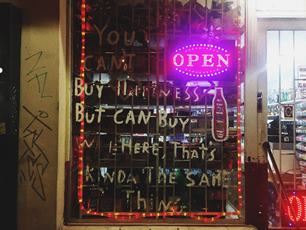 YOU
CAN'T
OPEN
BUY HAPPINESS
BUT CAN BUY
HERE, THAT'S
KINDA THE SAME
THING